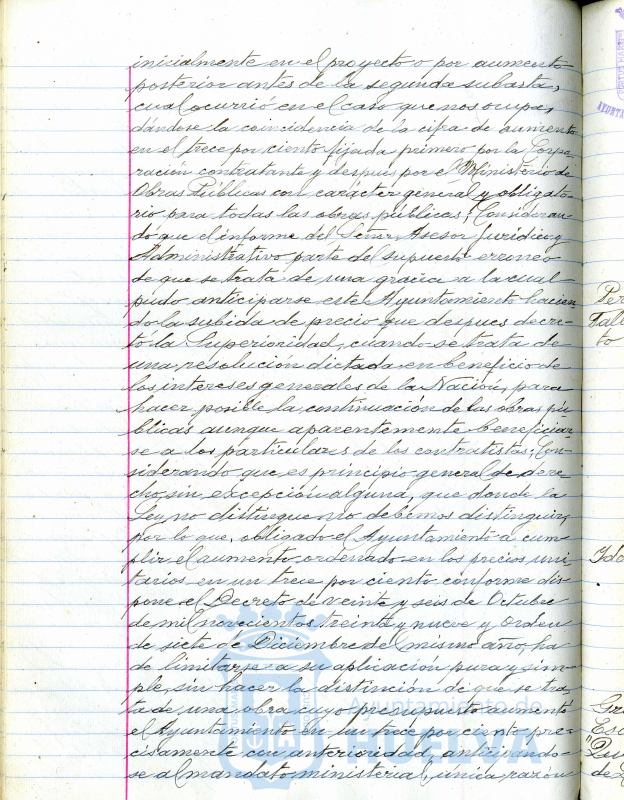 inicialmente en el proyecto o por aumento
posterior antes de la segunda subasta,
cual ocurrió en el caso que nos ocupa,
dándose la coincidencia de la cifra de aumento
en el trece por ciento fijada primero por la Corpo-
ración contratante y despues por el Ministerio de
Obras Públicas con carácter general y obligato-
rio para todas las obras públicas; Consideran-
do que el informe del Señor Asesor Jurídico y
Administrativo parte del supuesto erroneo
de que se trata de una gracia a la cual
pudo anticiparse este Ayuntamiento hacien-
do la subida de precio que despues decre-
tó la Superioridad, cuando se trata de
una resolución dictada en beneficio de
los intereses generales de la Nación, para
hacer posible la continuación de las obras pú-
blicas aunque aparentemente beneficiar-
se a los particulares de los contratistas; Con-
siderando que es principio general de dere-
cho, sin excepción alguna, que donde la
Ley no distingue no debemos distinguir,
por lo que, obligado el Ayuntamiento a cum-
plir el aumento ordenado en los precios uni-
tarios en un trece por ciento conforme dis-
pone el Decreto de veinte y seis de Octubre
de mil novecientos treinta y nueve y orden
de siete de Diciembre del mismo año, ha
de limitarse a su aplicación pura y sim-
ple, sin hacer la distinción de que se tra-
ta de una obra cuyo presupuesto aumentó
el Ayuntamiento en un trece por ciento pre-
cisamente con anterioridad, anticipando-
se al mandato ministerial, única razón
Ayuntamiento de
HUELVA